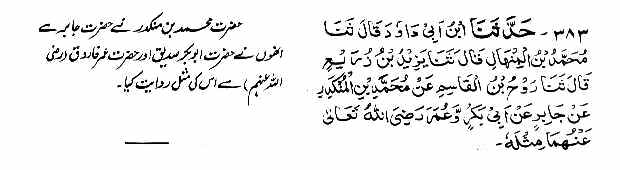 ۳۸۳- حَدَّثَنَا ابْنُ اَبِیْ دَاوٗدَ قَالَ ثَنَا
مُحَمَّدُ بْنُ الْمِنْهَالِ قَالَ ثَنَا یَزِیْدُ بْنُ زُرَیْعٍ
قَالَ ثَنَا رَوْحُ بْنُ الْقَاسِمِ عَنْ مُحَمَّدِ بْنِ الْمُنْکَدِرِ
عَنْ جَابِرٍ عَنْ اَبِیْ بَکْرٍ وَّعُمَرَ رَضِیَ اللّٰهُ تَعَالٰی
عَنْهُمَا مِثْلَهٗ۔
حضرت محمد بن منکدر نے حضرت جابر سے
انھوں نے حضرت ابوبکر صدیق اور حضرت عمر فاروق (رضی
اللہ عنہم) سے اس کی مثل روایت کیا۔